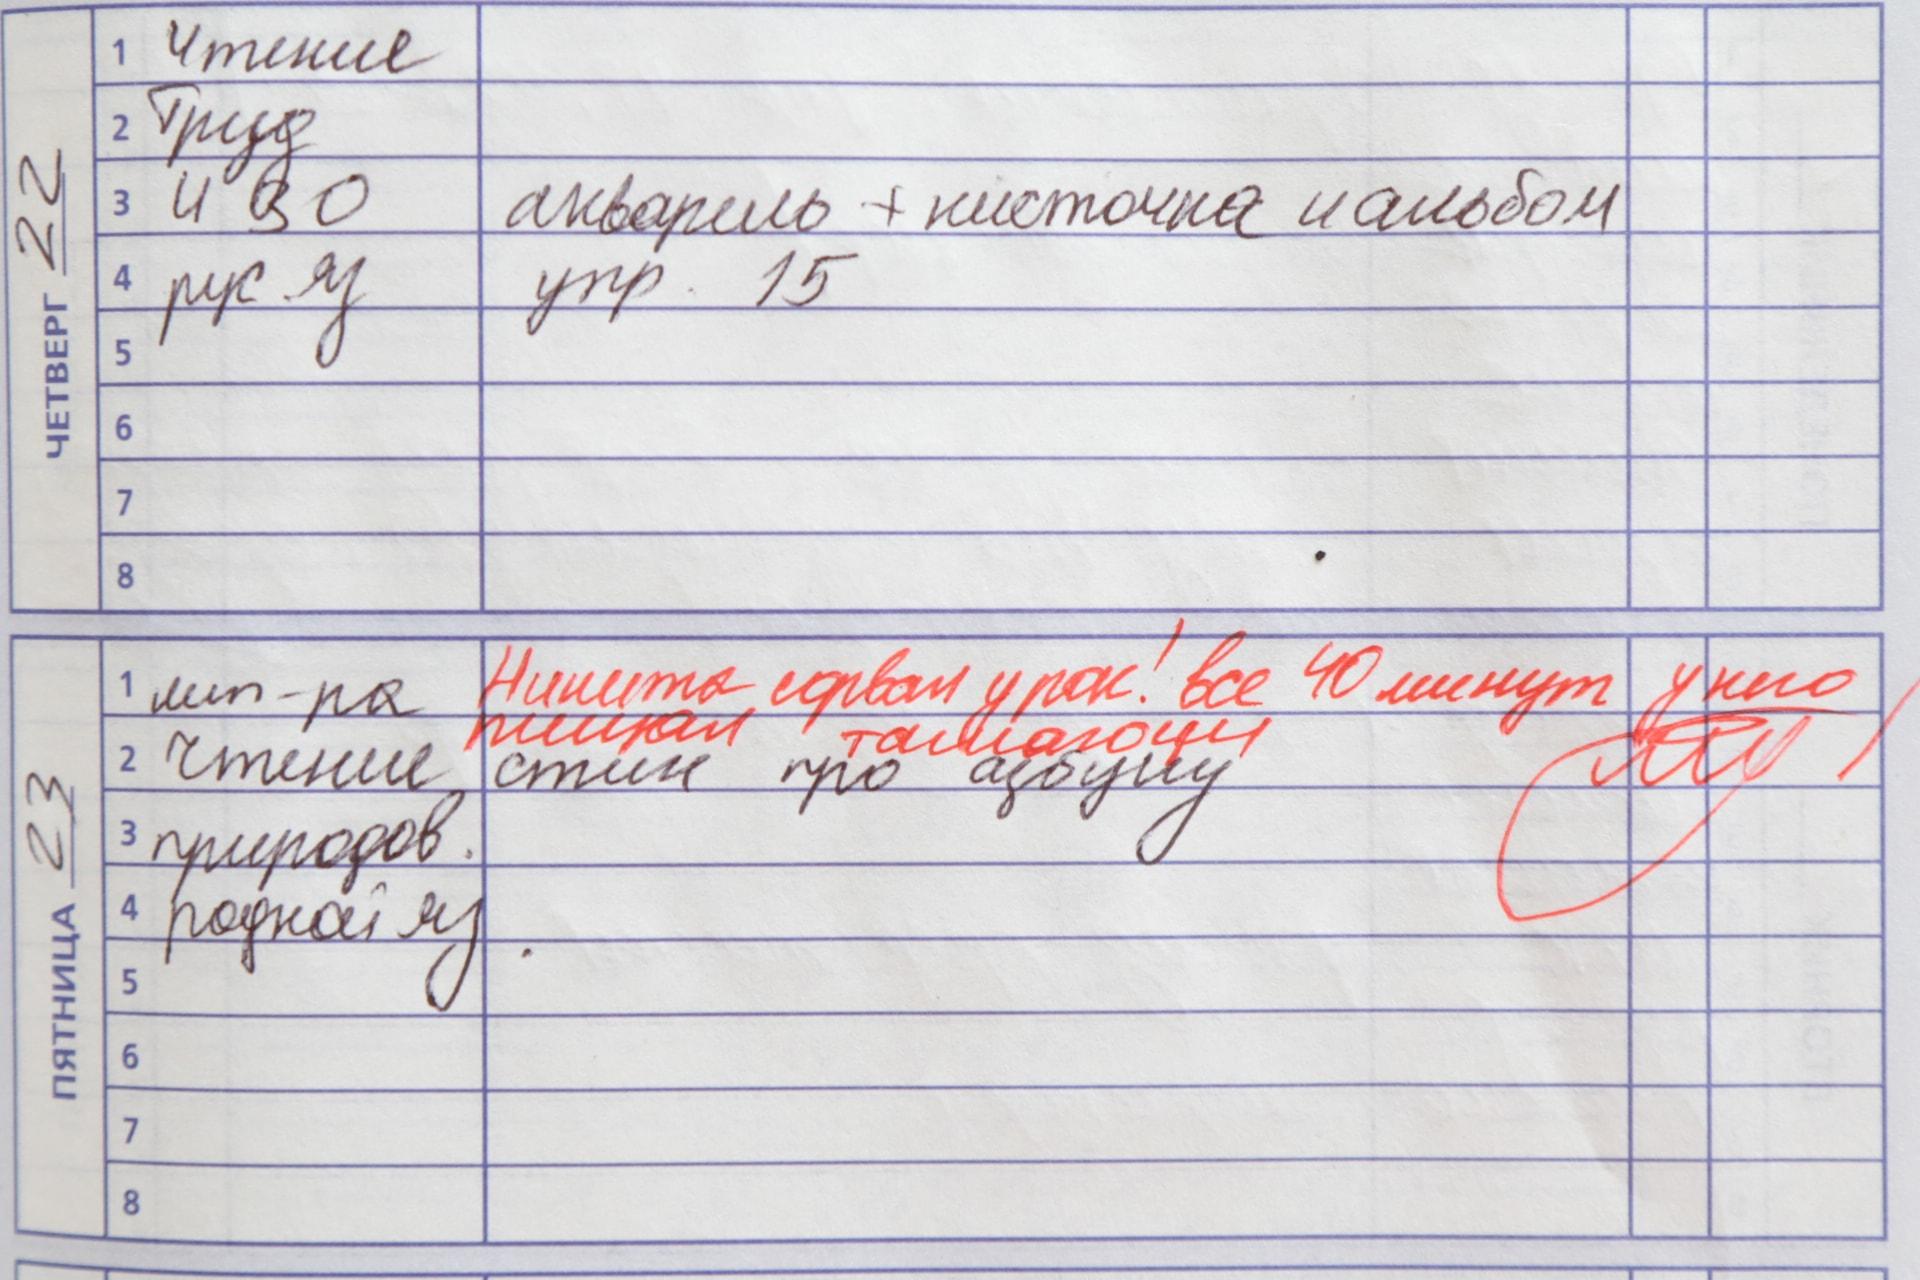 ЧЕТВЕРГ 22
1 Чтение
2 Труд
3 ИЗО акварель + кисточка и альбом
4 рус яз упр. 15
5
6
7
8
ПЯТНИЦА 23
1 лит-ра Никита сорвал урок! все 40 минут у него
пищал тамагочи
2 Чтение стих про азбуку
3 природов.
4 родной яз.
5
6
7
8